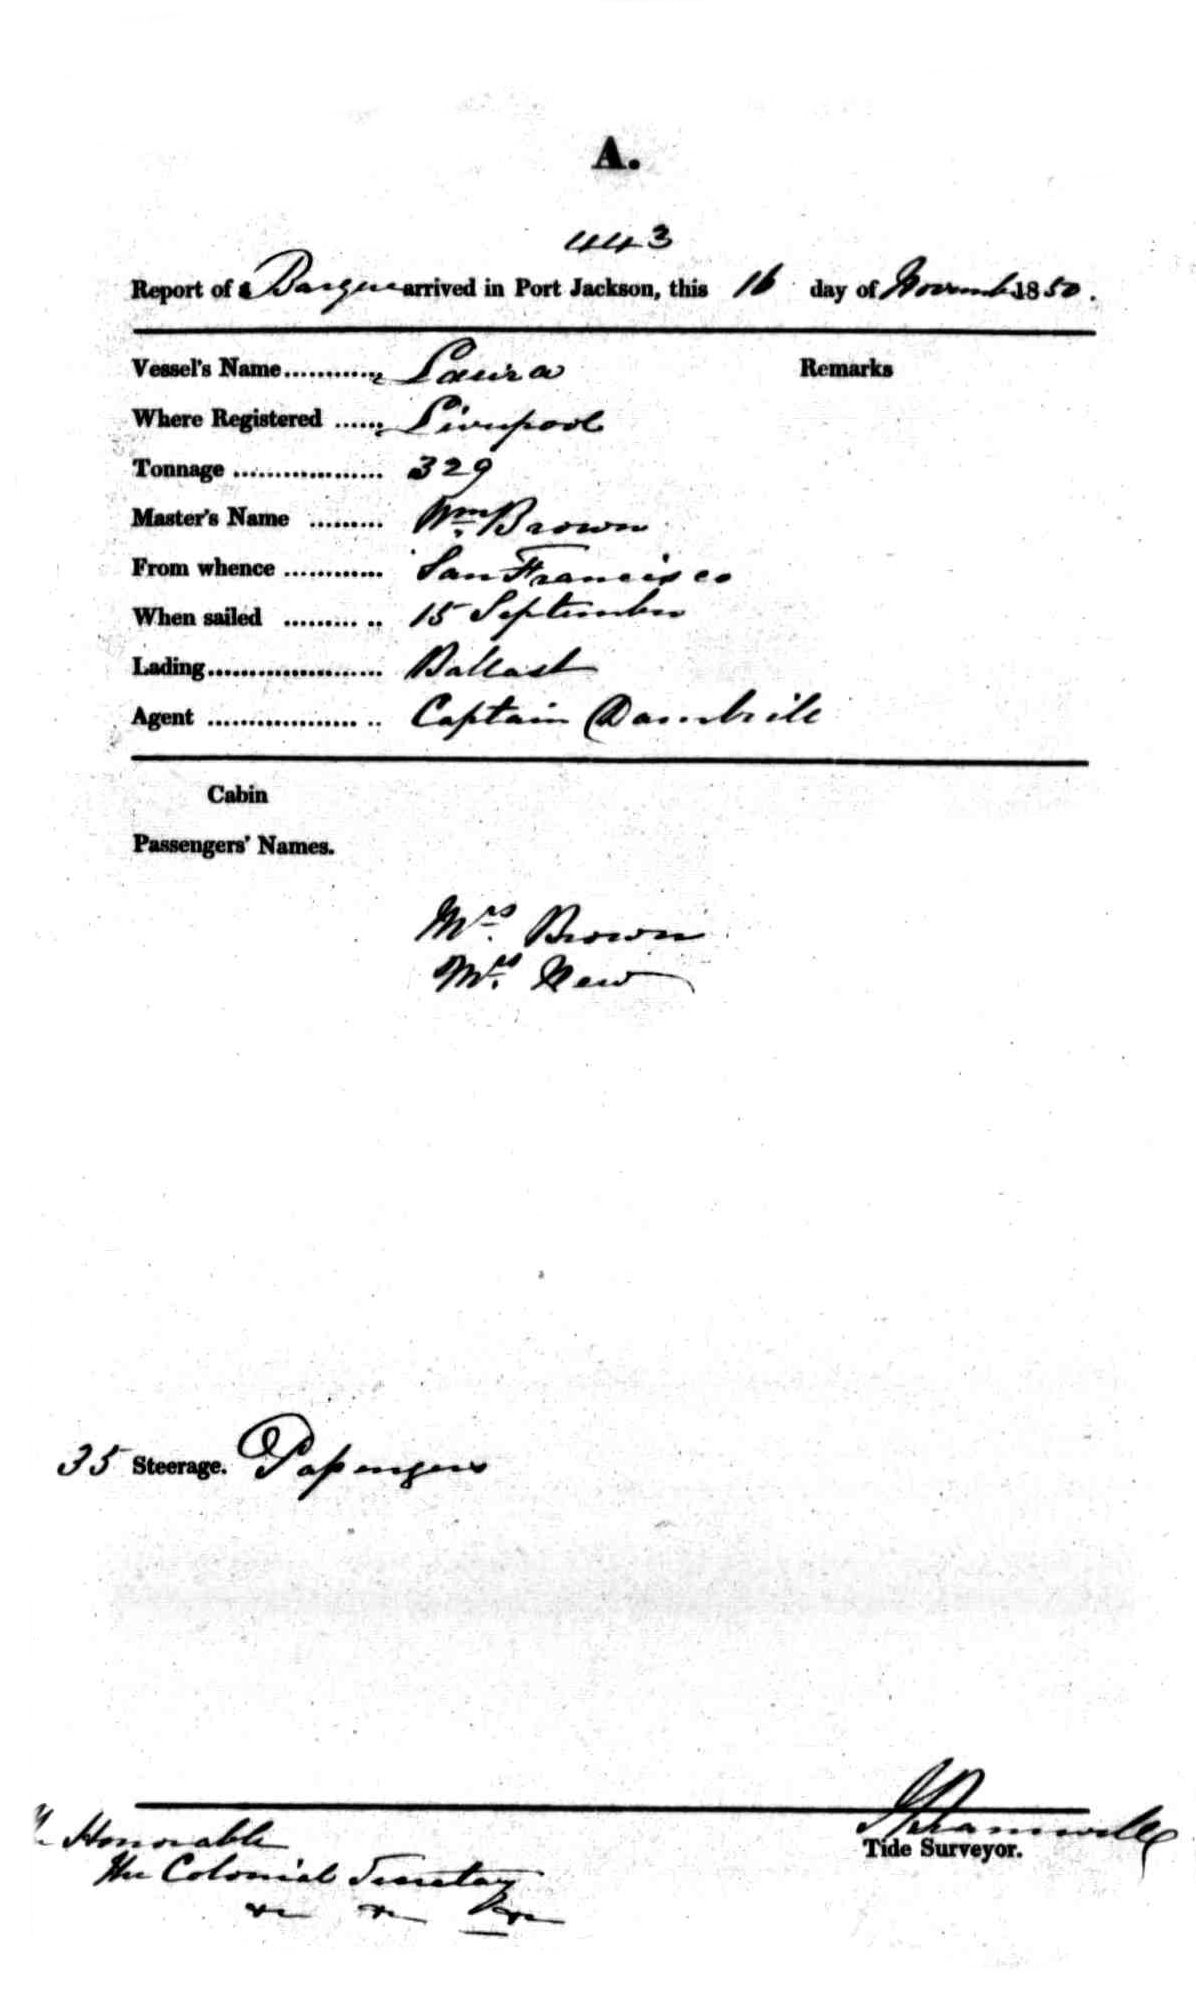 A.
443
Report of a Barque arrived in Port Jackson, this 16 day of November 1850.
Vessel's Name............ Laura Remarks
Where Registered ...... Liverpool
Tonnage .................. 329
Master's Name ......... Wm. Brown
From whence ............ San Francisco
When sailed ......... .. 15 September
Lading..................... Ballast
Agent .................. .. Captain Dambrill
Cabin
Passengers' Names.
Mrs. Brown
Mrs. New
35 Steerage. Passengers
Honorable
The Colonial Secretary
Tide Surveyor.